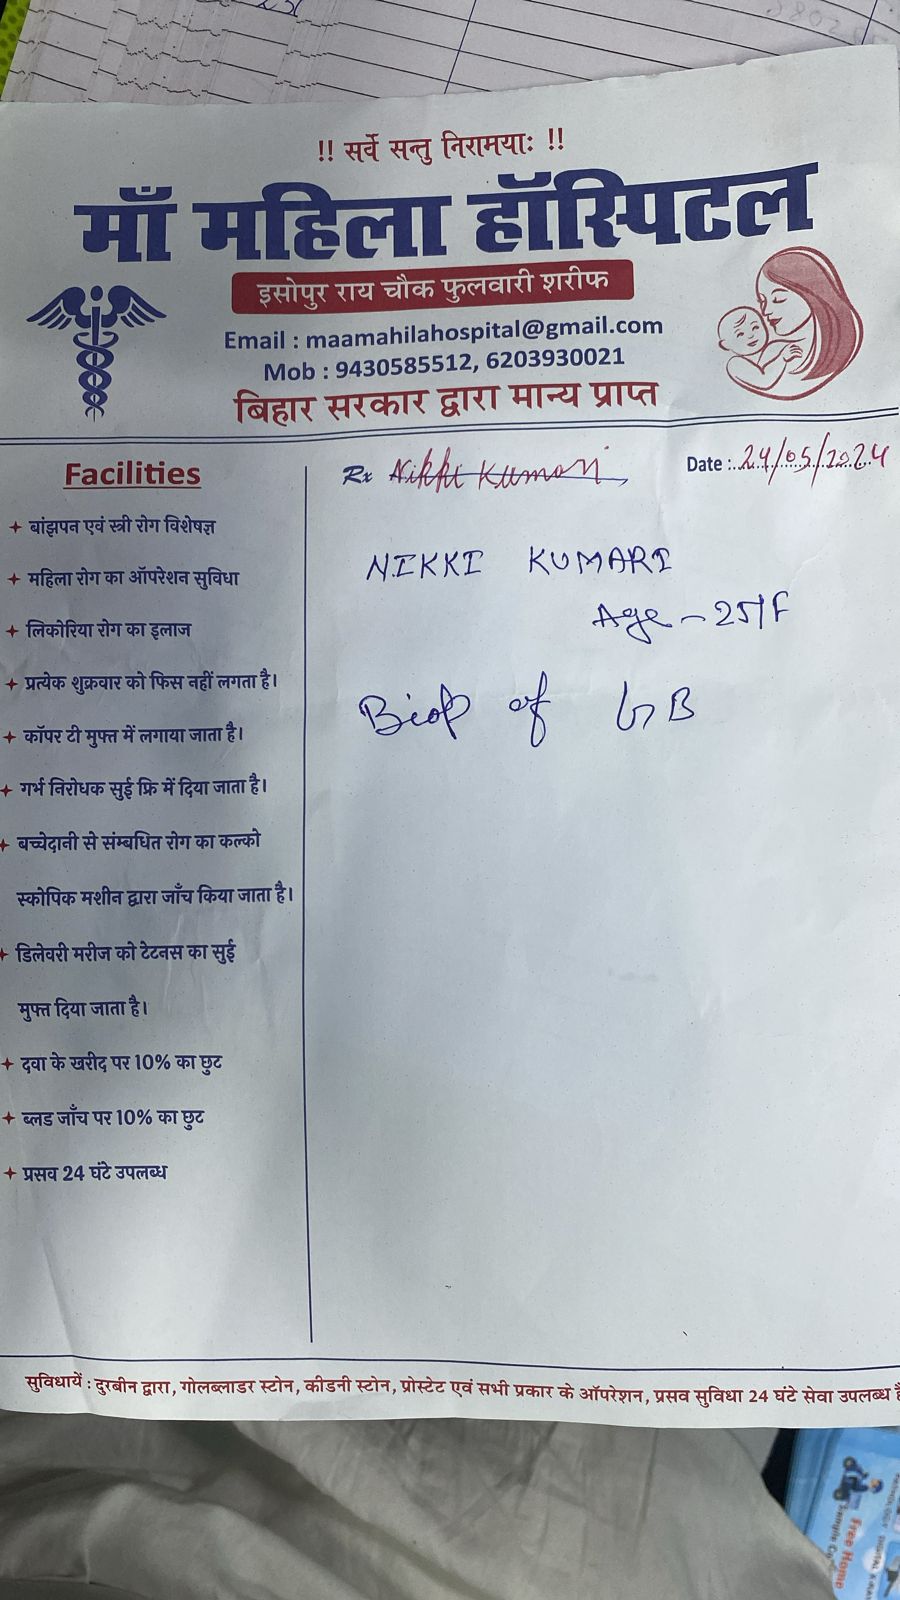 !! सर्वे सन्तु निरामयाः !!
माँ महिला हॉस्पिटल
इसोपुर राय चौक फुलवारी शरीफ
Email : maamahilahospital@gmail.com
Mob : 9430585512, 6203930021
बिहार सरकार द्वारा मान्य प्राप्त
Rx Nikki Kumari
Date :. 24/05/2024
NIKKI KUMARI
Age - 25/F
Biop of GB
Facilities
बांझपन एवं स्त्री रोग विशेषज्ञ
महिला रोग का ऑपरेशन सुविधा
लिकोरिया रोग का इलाज
प्रत्येक शुक्रवार को फिस नहीं लगता है।
कॉपर टी मुफ्त में लगाया जाता है।
गर्भ निरोधक सुई फ्रि में दिया जाता है।
बच्चेदानी से संम्बधित रोग का कल्को
स्कोपिक मशीन द्वारा जाँच किया जाता है।
डिलेवरी मरीज को टेटनस का सुई
मुफ्त दिया जाता है।
दवा के खरीद पर 10% का छुट
ब्लड जाँच पर 10% का छुट
प्रसव 24 घंटे उपलब्ध
सुविधायें : दुरबीन द्वारा, गोलब्लाडर स्टोन, कीडनी स्टोन, प्रोस्टेट एवं सभी प्रकार के ऑपरेशन, प्रसव सुविधा 24 घंटे सेवा उपलब्ध है
Free Home